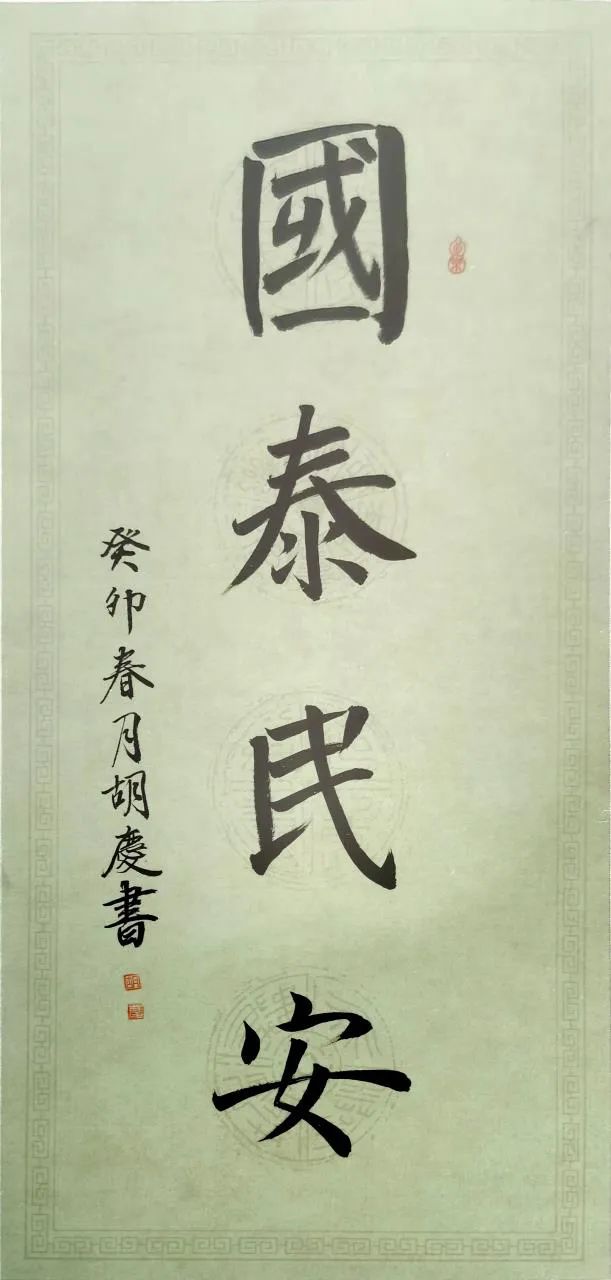 國泰民安
癸卯春月胡慶書